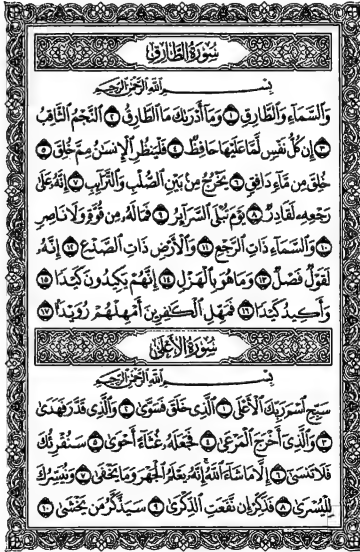 سُورَةُ الطَّارِقِ
بِسْمِ اللَّهِ الرَّحْمَٰنِ الرَّحِيمِ
وَالسَّمَاءِ وَالطَّارِقِ ١ وَمَا أَدْرَىٰكَ مَا الطَّارِقُ ٢ النَّجْمُ الثَّاقِبُ
٣ إِن كُلُّ نَفْسٍ لَّمَّا عَلَيْهَا حَافِظٌ ٤ فَلْيَنظُرِ الْإِنسَٰنُ مِمَّ خُلِقَ ٥
خُلِقَ مِن مَّاءٍ دَافِقٍ ٦ يَخْرُجُ مِنۢ بَيْنِ الصُّلْبِ وَالتَّرَائِبِ ٧ إِنَّهُ عَلَىٰ
رَجْعِهِ لَقَادِرٌ ٨ يَوْمَ تُبْلَى السَّرَائِرُ ٩ فَمَا لَهُ مِن قُوَّةٍ وَلَا نَاصِرٍ
١٠ وَالسَّمَاءِ ذَاتِ الرَّجْعِ ١١ وَالْأَرْضِ ذَاتِ الصَّدْعِ ١٢ إِنَّهُ
لَقَوْلٌ فَصْلٌ ١٣ وَمَا هُوَ بِالْهَزْلِ ١٤ إِنَّهُمْ يَكِيدُونَ كَيْدًا ١٥
وَأَكِيدُ كَيْدًا ١٦ فَمَهِّلِ الْكَٰفِرِينَ أَمْهِلْهُمْ رُوَيْدًا ١٧
سُورَةُ الْأَعْلَىٰ
بِسْمِ اللَّهِ الرَّحْمَٰنِ الرَّحِيمِ
سَبِّحِ اسْمَ رَبِّكَ الْأَعْلَى ١ الَّذِي خَلَقَ فَسَوَّىٰ ٢ وَالَّذِي قَدَّرَ فَهَدَىٰ
٣ وَالَّذِي أَخْرَجَ الْمَرْعَىٰ ٤ فَجَعَلَهُ غُثَاءً أَحْوَىٰ ٥ سَنُقْرِئُكَ
فَلَا تَنسَىٰ ٦ إِلَّا مَا شَاءَ اللَّهُ إِنَّهُ يَعْلَمُ الْجَهْرَ وَمَا يَخْفَىٰ ٧ وَنُيَسِّرُكَ
لِلْيُسْرَىٰ ٨ فَذَكِّرْ إِن نَّفَعَتِ الذِّكْرَىٰ ٩ سَيَذَّكَّرُ مَن يَخْشَىٰ ١٠